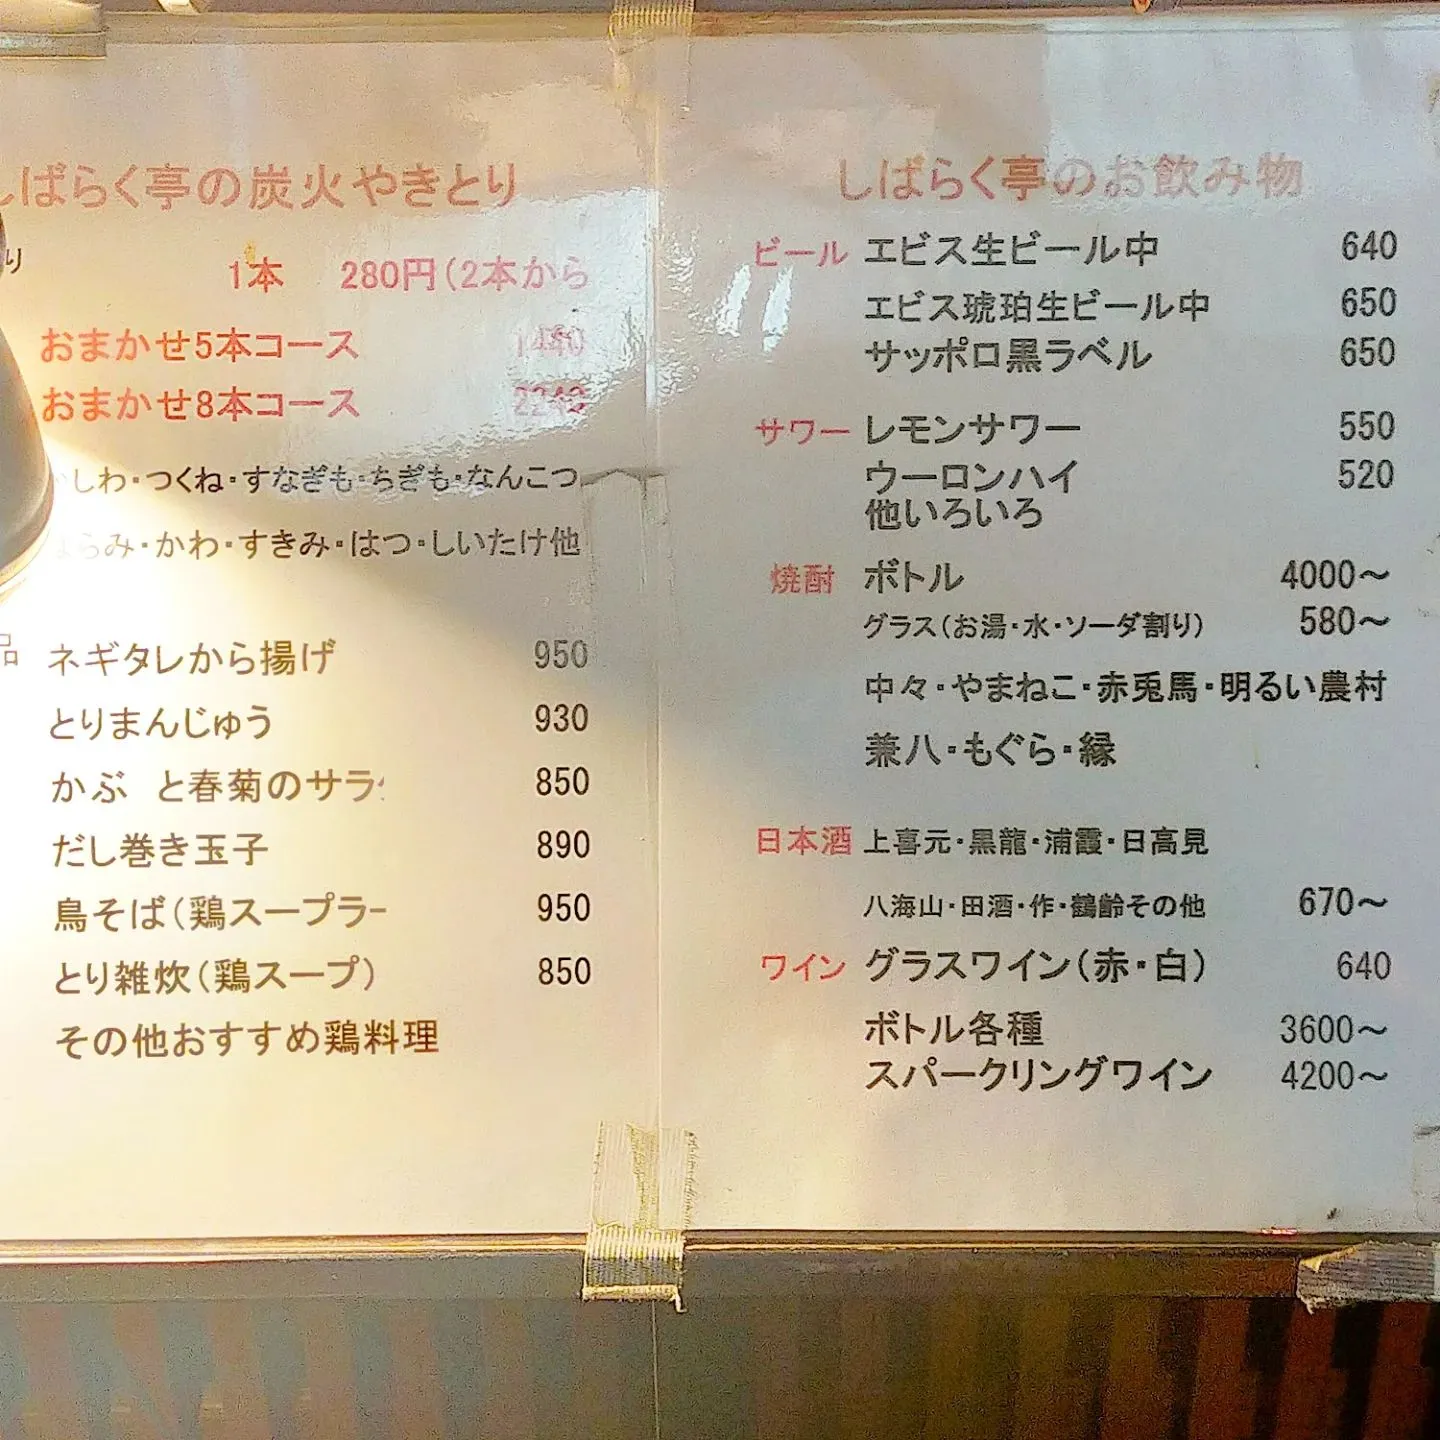 しばらく亭の炭火やきとり
り
1本 280円(2本から
おまかせ5本コース 1440
おまかせ8本コース 2240
しわ・つくね・すなぎも・ちぎも・なんこつ
らみ・かわ・すきみ・はつ・しいたけ他
品 ネギタレから揚げ 950
とりまんじゅう 930
かぶ と春菊のサラダ 850
だし巻き玉子 890
鳥そば(鶏スープラー 950
とり雑炊(鶏スープ) 850
その他おすすめ鶏料理
しばらく亭のお飲み物
ビール エビス生ビール中 640
エビス琥珀生ビール中 650
サッポロ黒ラベル 650
サワー レモンサワー 550
ウーロンハイ 520
他いろいろ
焼酎 ボトル 4000〜
グラス(お湯・水・ソーダ割り) 580〜
中々・やまねこ・赤兎馬・明るい農村
兼八・もぐら・縁
日本酒 上喜元・黒龍・浦霞・日高見
八海山・田酒・作・鶴齢その他 670〜
ワイン グラスワイン(赤・白) 640
ボトル各種 3600〜
スパークリングワイン 4200〜